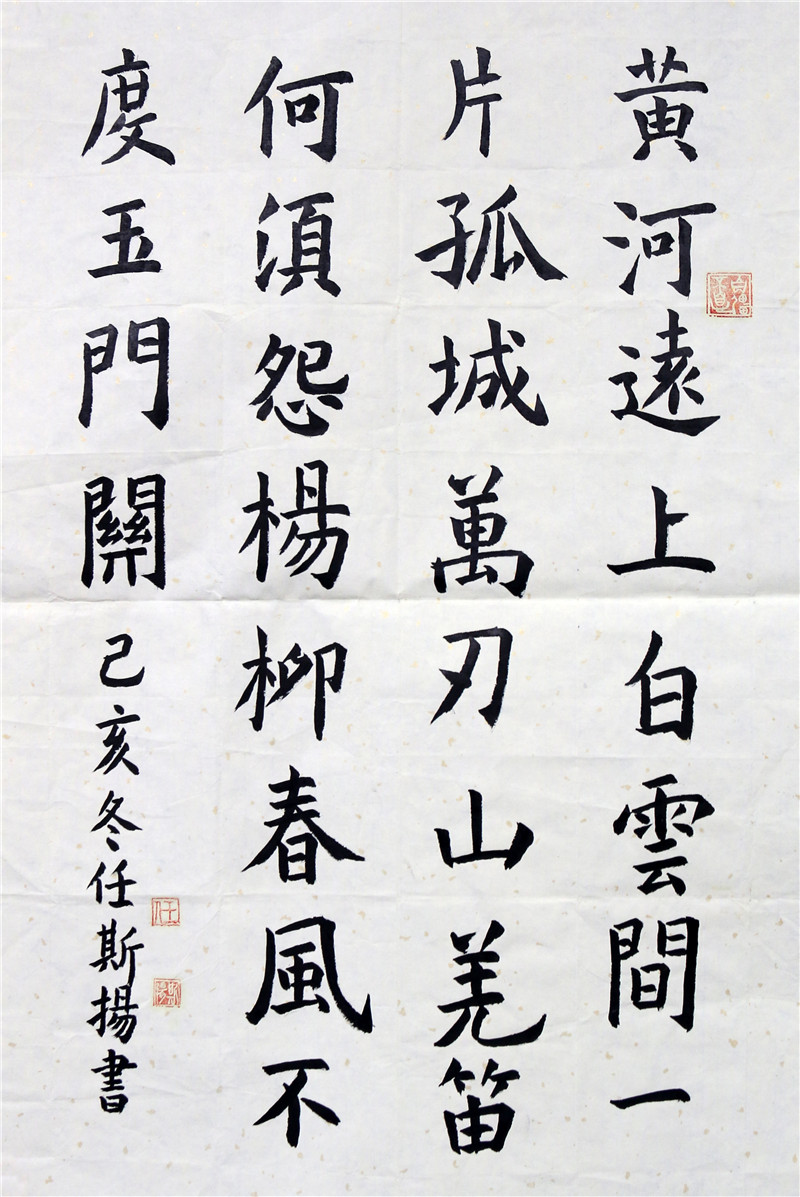 黄河遠上白雲間一
片孤城萬刃山羌笛
何須怨楊柳春風不
度玉門關
己亥冬任斯揚書
任